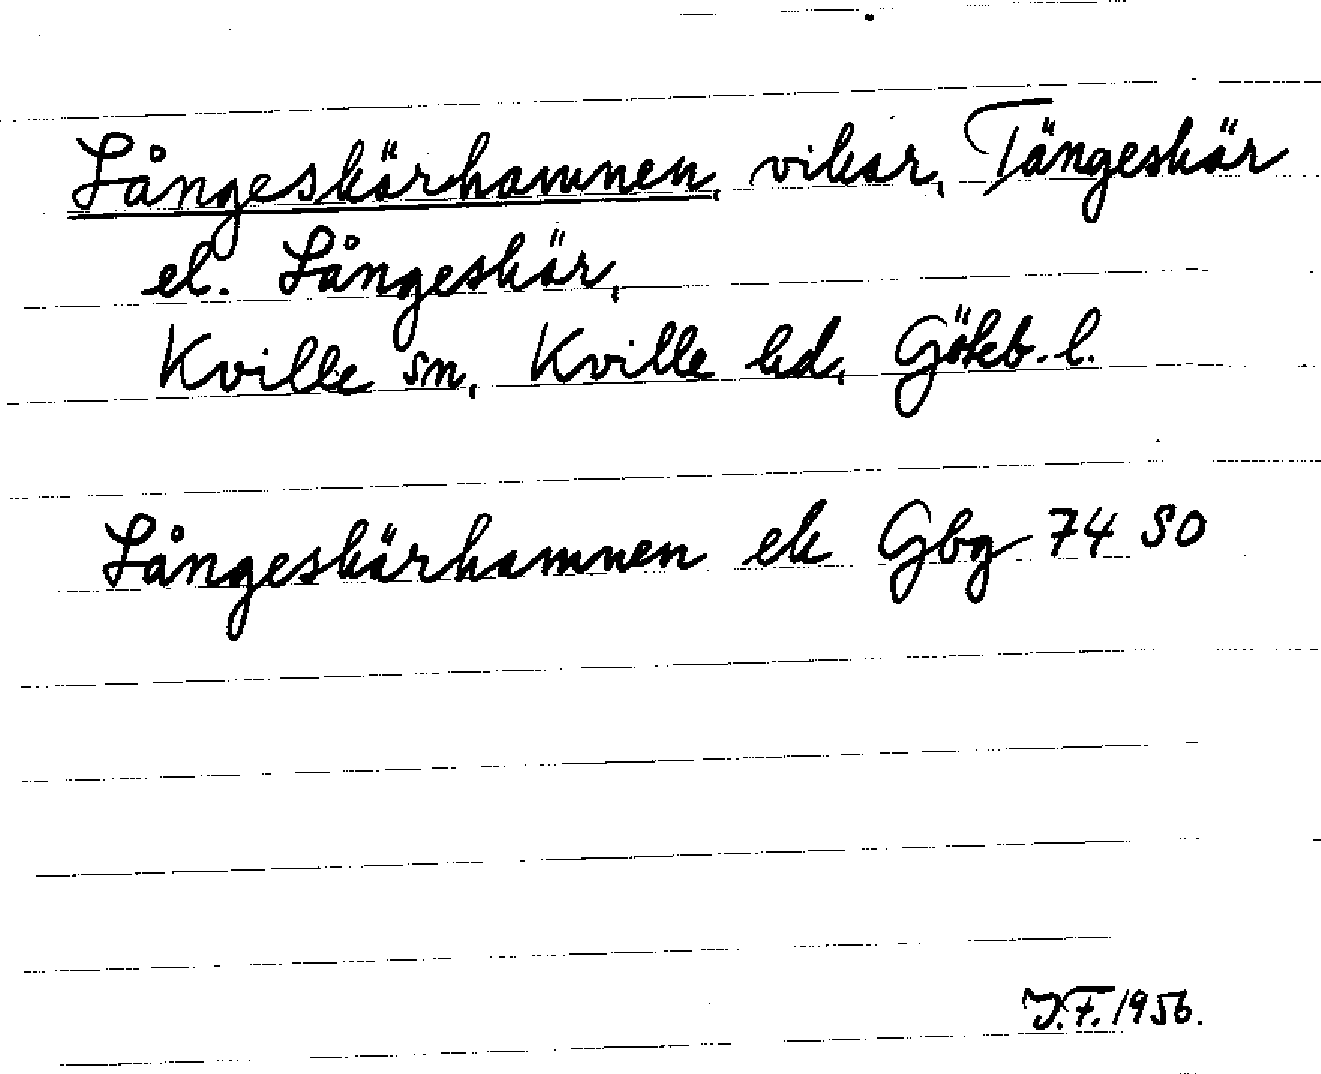 Långeskärhamnen, vikar, Tångeskär
el. Långeskär,
Kville sn, Kville hd, Götebl.
Långeskärhamnen ek Gbg 74 SO
J.F. 1956.